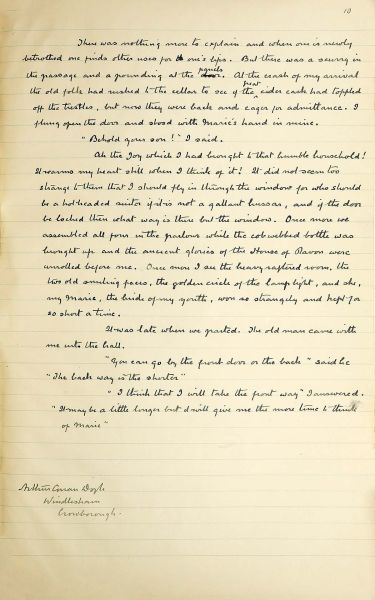 10
There was nothing more to explain and when one is newly
betrothed one finds other uses for one's lips. But there was a scurry in
the passage and a pounding at the panels. At the crash of my arrival
the old folk had rushed to the cellar to see if the great cider cask had toppled
off the trestles, but now they were back and eager for admittance. I
flung open the door and stood with Marie's hand in mine.
"Behold your son!" I said.
Ah the joy which I had brought to that humble household!
It warms my heart still when I think of it! It did not seem too
strange to them that I should fly in through the window for who should
be a hot-headed suitor if it is not a gallant hussar, and if the door
be locked then what way is there but the window. Once more we
assembled all four in the parlour while the cobwebbed bottle was
brought up and the ancient glories of the House of Ravon were
unrolled before me. Once more I see the heavy raftered room, the
two old smiling faces, the golden circle of the lamp light, and she,
my Marie, the bride of my youth, won so strangely and kept for
so short a time.
It was late when we parted. The old man came with
me into the hall.
"You can go by the front door or the back" said he
"The back way is the shorter"
"I think that I will take the front way" I answered.
"It may be a little longer but it will give me the more time to think
of Marie"
Arthur Conan Doyle
Windlesham
Crowborough.